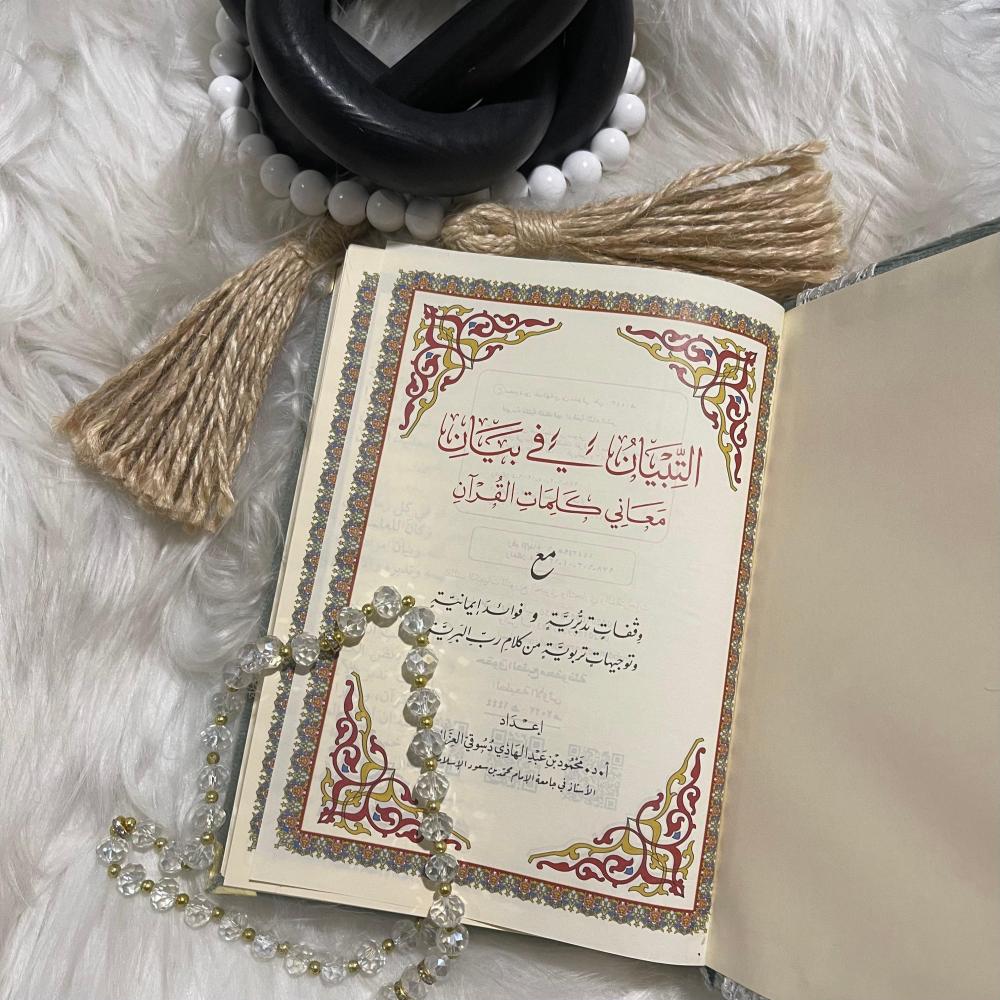 التِّبْيَانُ فِي بَيَانِ
مَعَانِي كَلِمَاتِ القُرْآنِ
مع
وقفاتٍ تدبُّريَّةٍ و فوائدَ إيمانيَّة
وتوجيهاتٍ تربويَّةٍ من كلامِ ربِّ البريَّة
إعْدَاد
أ.د. مَحْمُود بْن عَبْد الهَادِي دُسُوقِي
الأستاذ في جامعة الإمام محمد بن سعود الإسلامية